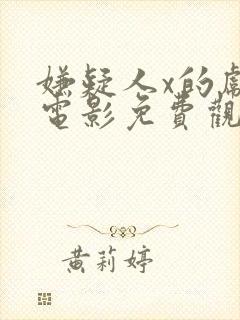 嫌疑人x的
電影免費觀
黃莉婷